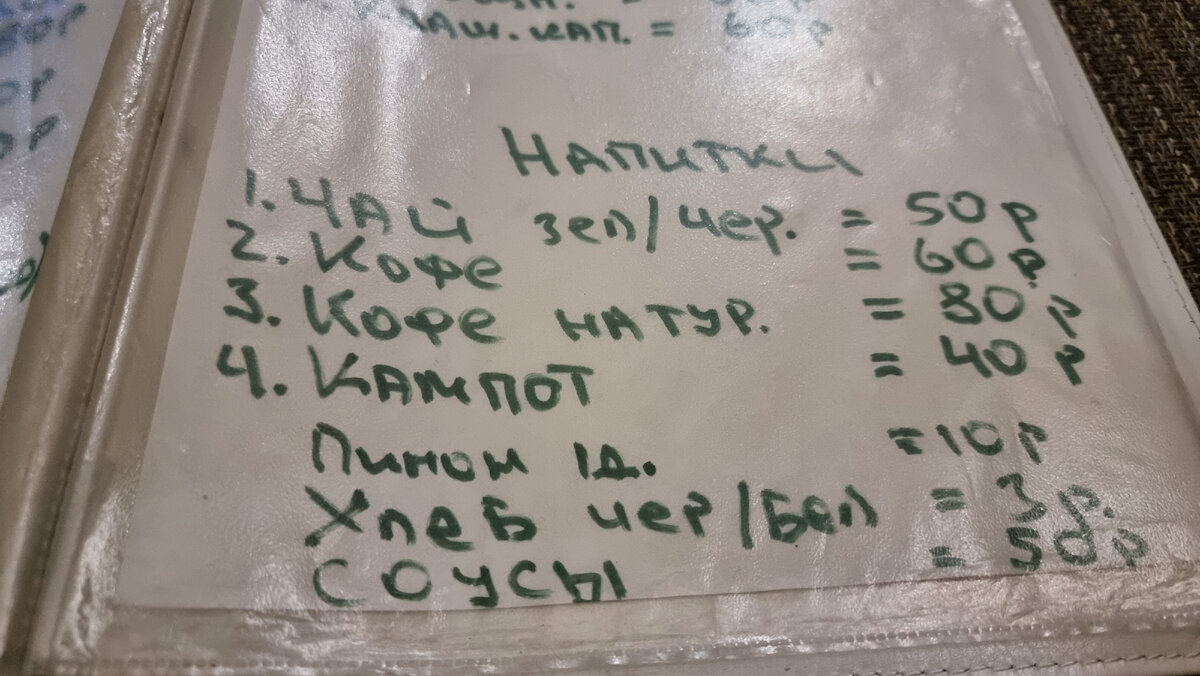 ЗАШ.КАП. = 60р
НАПИТКИ
1. ЧАЙ зел/чер. = 50р
2. Кофе = 60р
3. Кофе НАТУР. = 80р
4. КАМПОТ = 40р
Лимон 1д. = 10р
Хлеб чер/Бел = 3р.
СОУСЫ = 50р